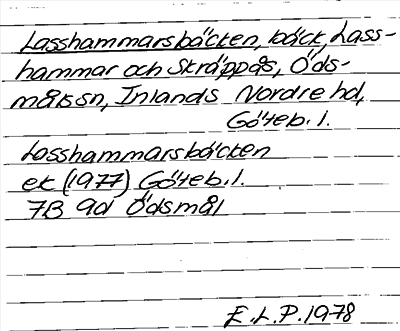 Lasshammarsbäcken, bäck, Lass-
hammar och Skräppås, Öds-
måls sn, Inlands Nordre hd,
Göteb. l.
Lasshammarsbäcken
ek (1977) Göteb. l.
7B 9d Ödsmål
E.L.P. 1978